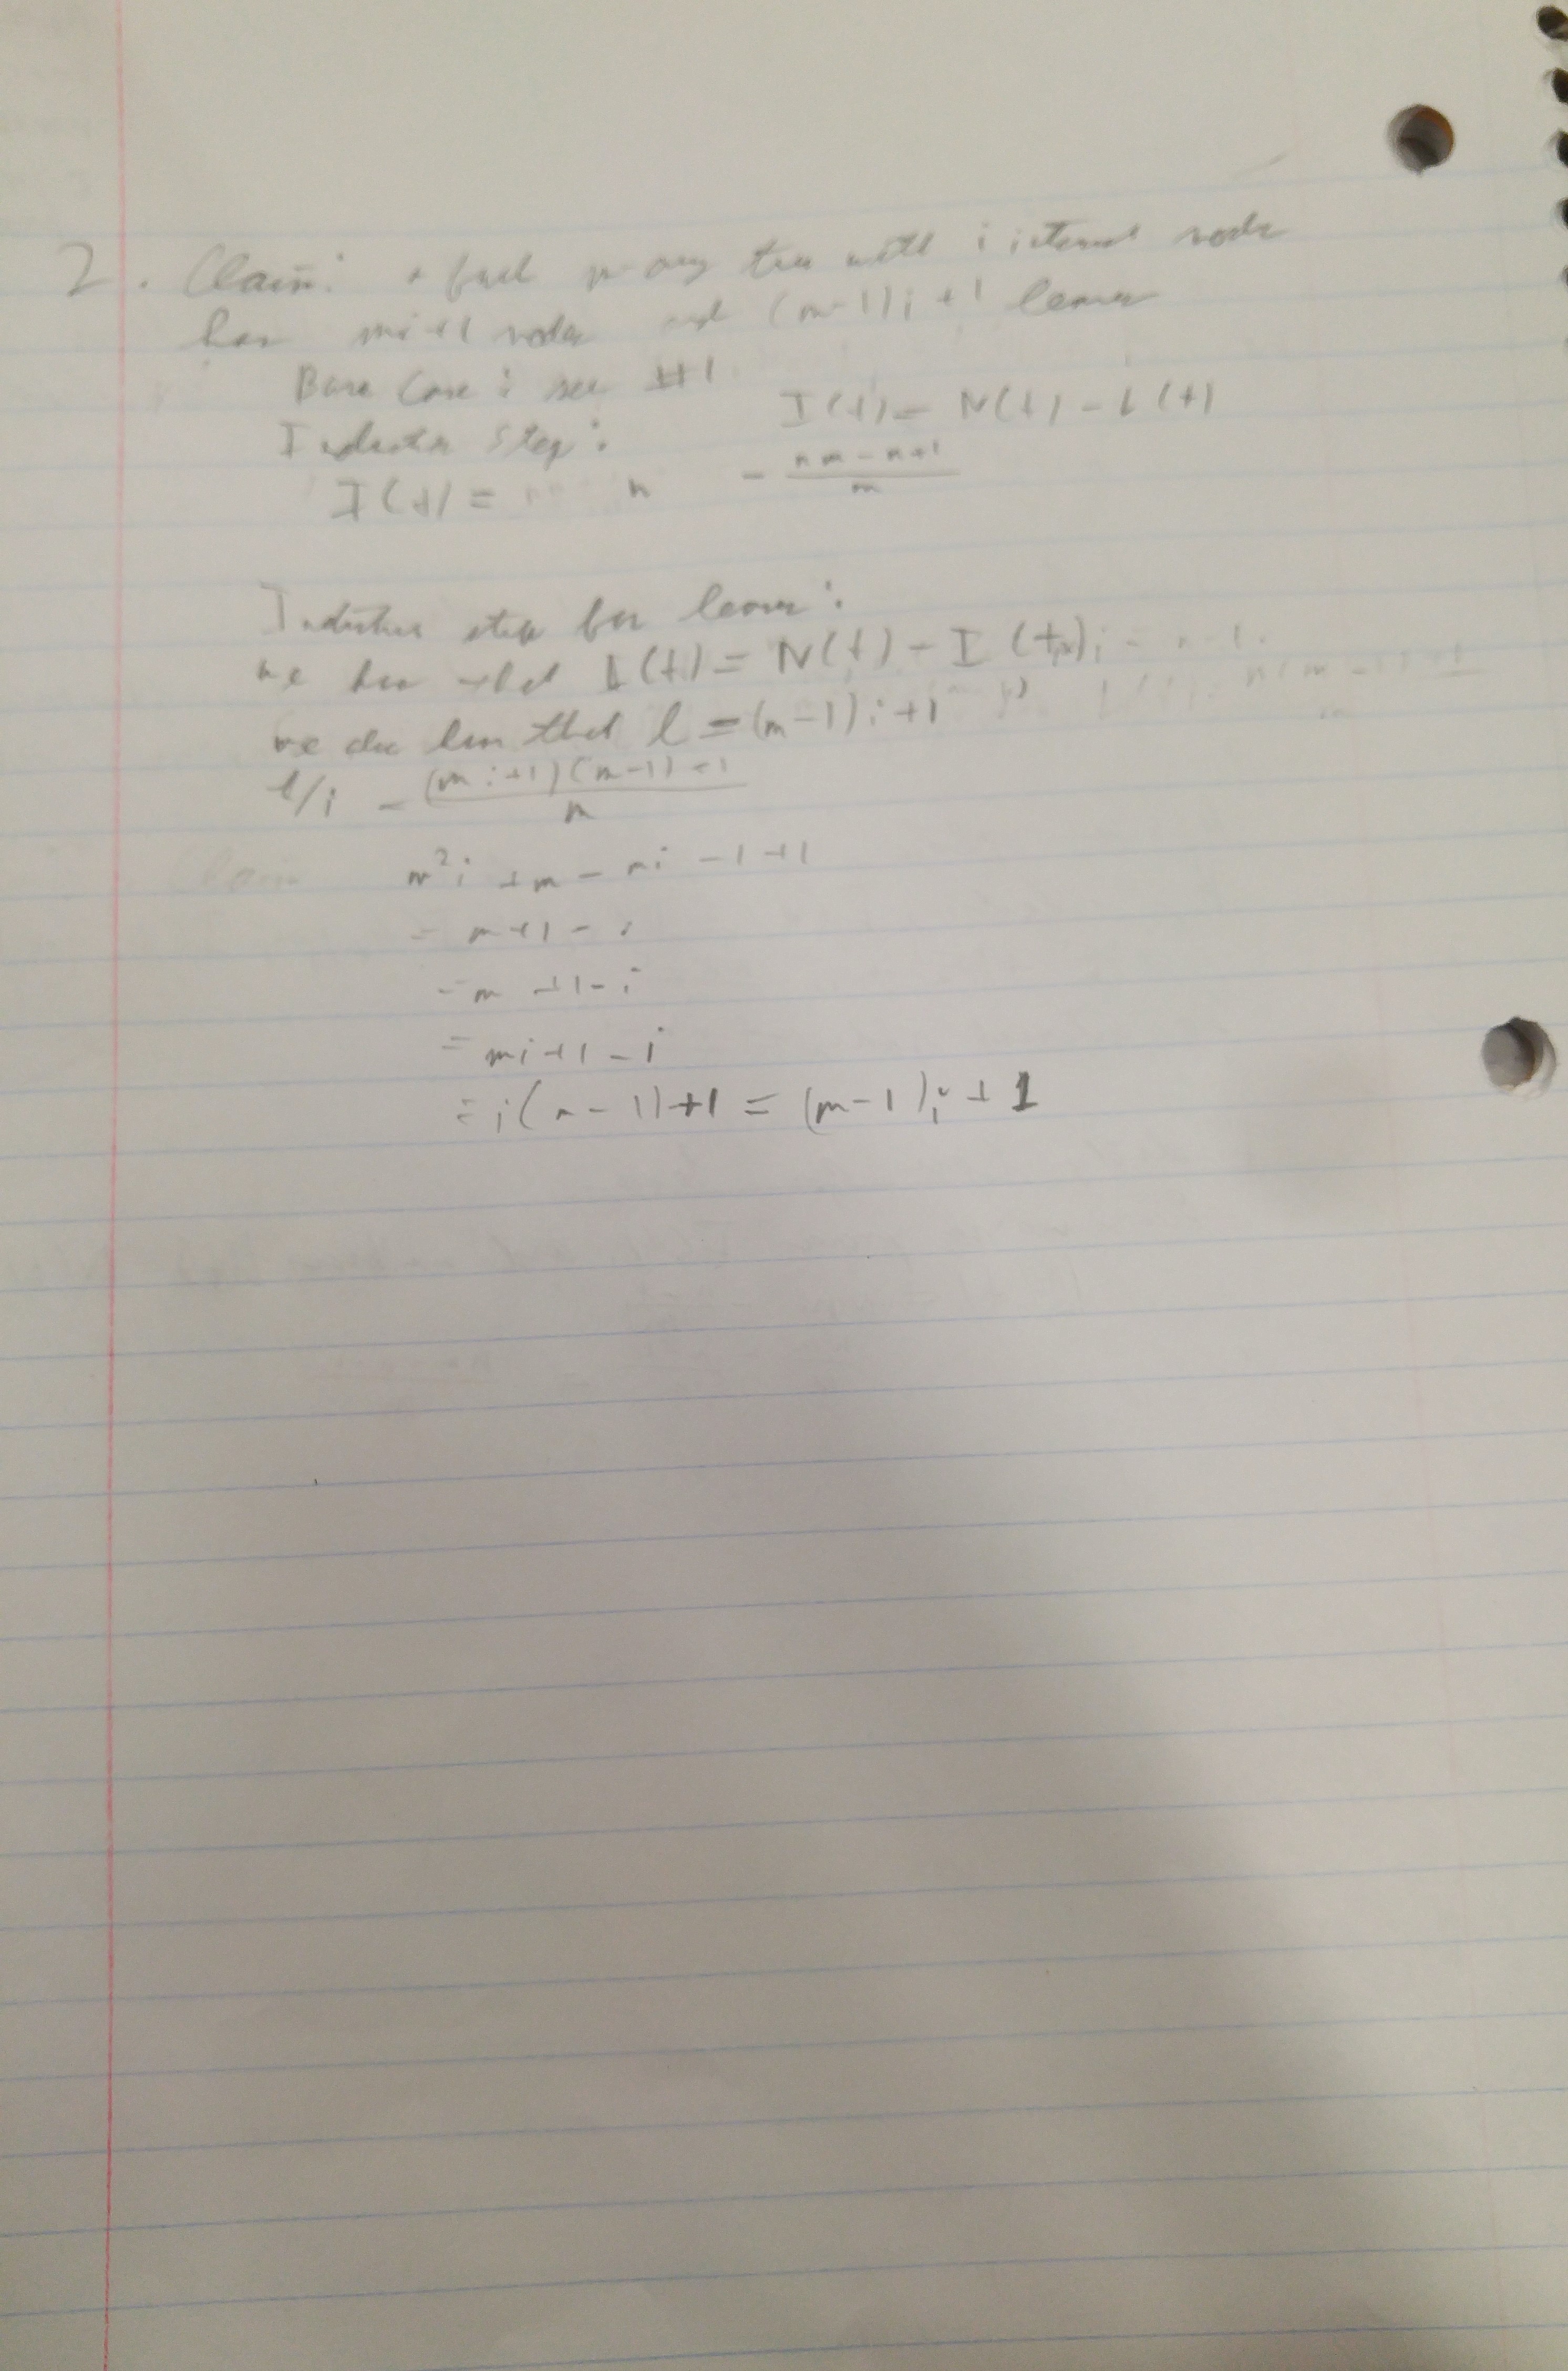 2. Claim: a full m-ary tree with i internal nodes
has mi+1 nodes and (m-1)i+1 leaves
Base Case: see #1
I(t) = N(t) - L(t)
Inductive Step:
I(t) = n - (nm-n+1)/m
Inductive step for leaves:
we have that L(t) = N(t) - I(t)
we also know that l = (m-1)i+1
l/i = ((mi+1)(m-1)+1)/m
m²i + m - mi - 1 + 1
= m+1-i
= m+1-i
= mi+1-i
= i(m-1)+1 = (m-1)i+1